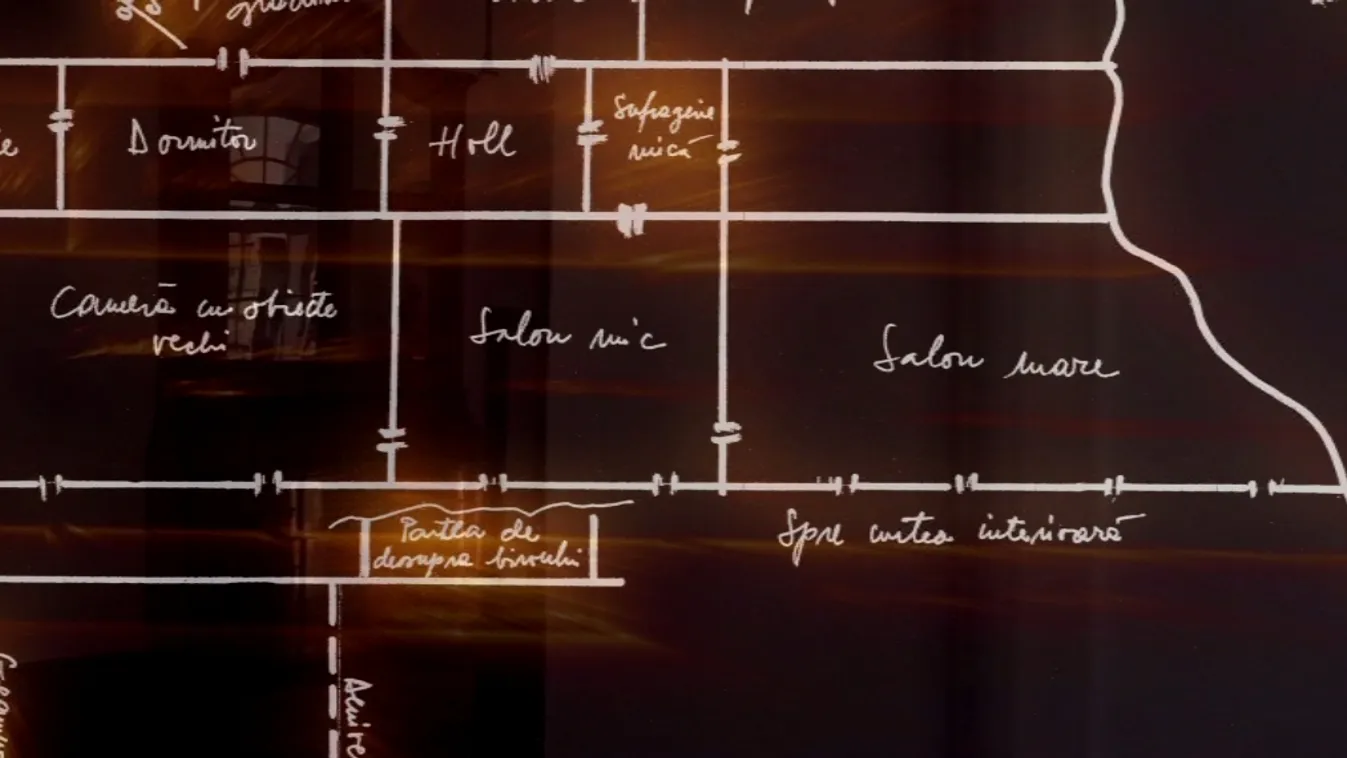 Dormitor
Holl
Sufragerie
mică
Cameră cu obiecte
vechi
Salon mic
Salon mare
Partea de
deasupra biroului
Spre curtea interioară